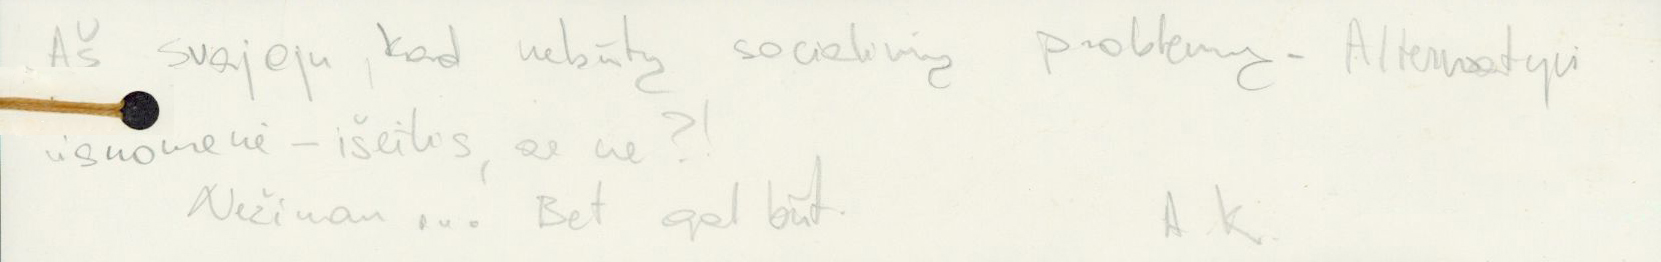 Aš svajoju, kad nebūtų socialinių problemų - Alternatyvi
visuomenė - išeitis, ar ne?!
Nežinau ... Bet gal būt.
A K.